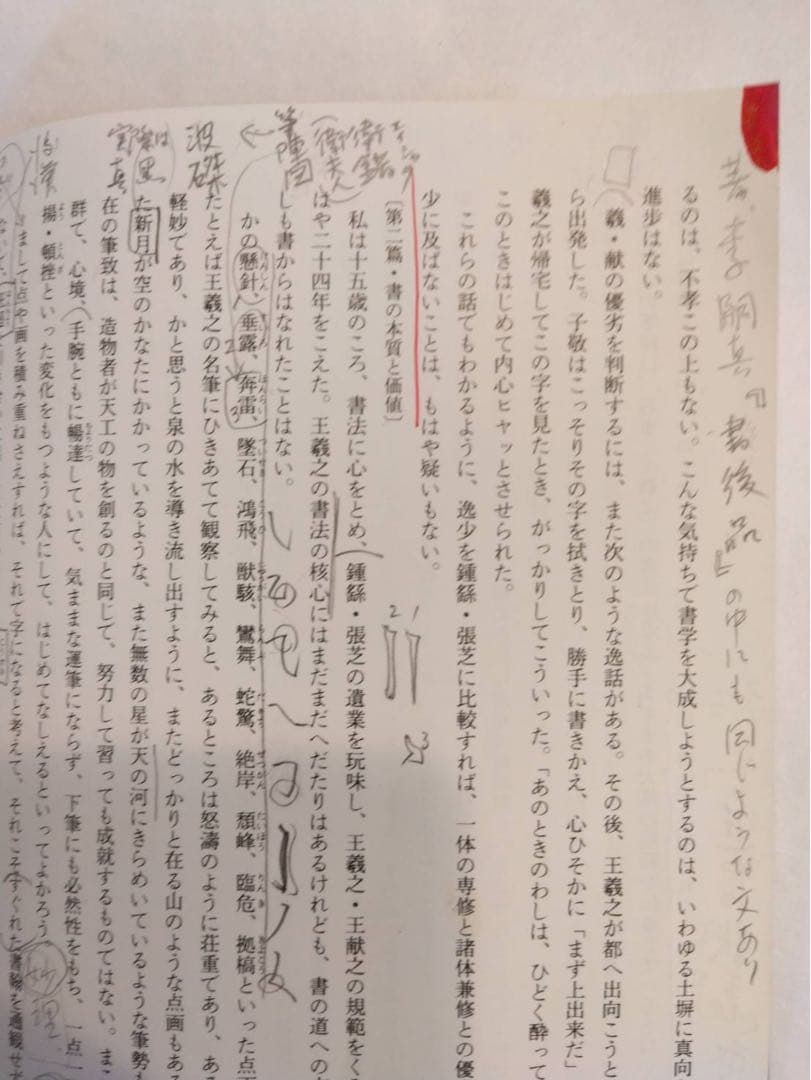 昔、李嗣真『書後品』の中にも同じような文あり
るのは、不孝この上もない。こんな気持ちで書学を大成しようとするのは、いわゆる土塀に真向
進歩はない。
羲・献の優劣を判断するには、また次のような逸話がある。その後、王羲之が都へ出向こうと
ら出発した。子敬はこっそりその字を拭きとり、勝手に書きかえ、心ひそかに「まず上出来だ」
羲之が帰宅してこの字を見たとき、がっかりしてこういった。「あのときのわしは、ひどく酔って
このときはじめて内心ヒヤッとさせられた。
これらの話でもわかるように、逸少を鍾繇・張芝に比較すれば、一体の専修と諸体兼修との優
少に及ばないことは、もはや疑いもない。
〔第二篇・書の本質と価値〕
衛鑠
(衛夫人)
筆陣図
私は十五歳のころ、書法に心をとめ、鍾繇・張芝の遺業を玩味し、王羲之・王献之の規範をく
はや二十四年をこえた。王羲之の書法の核心にはまだまだへだたりはあるけれども、書の道への
しも書からはなれたことはない。
かの懸針、垂露、奔雷、墜石、鴻飛、獣駭、鸞舞、蛇驚、絶岸、頽峰、臨危、拠槁といった点
たとえば王羲之の名筆にひきあてて観察してみると、あるところは怒濤のように荘重であり、あ
波磔
軽妙であり、かと思うと泉の水を導き流し出すように、またどっかりと在る山のような点画もある
た新月が空のかなたにかかっているような、また無数の星が天の河にきらめいているような筆勢も
実際は黒
在の筆致は、造物者が天工の物を創るのと同じで、努力して習っても成就するものではない。まこ
群で、心境、手腕ともに暢達していて、気ままな運筆にならず、下筆にも必然性をもち、一点一
揚・頓挫といった変化をもつような人にして、はじめてなしえるといってよかろう。
まして点や画を積み重ねさえすれば、それで字になると考えて、それこそすぐれた書輪を通観せず
妙理